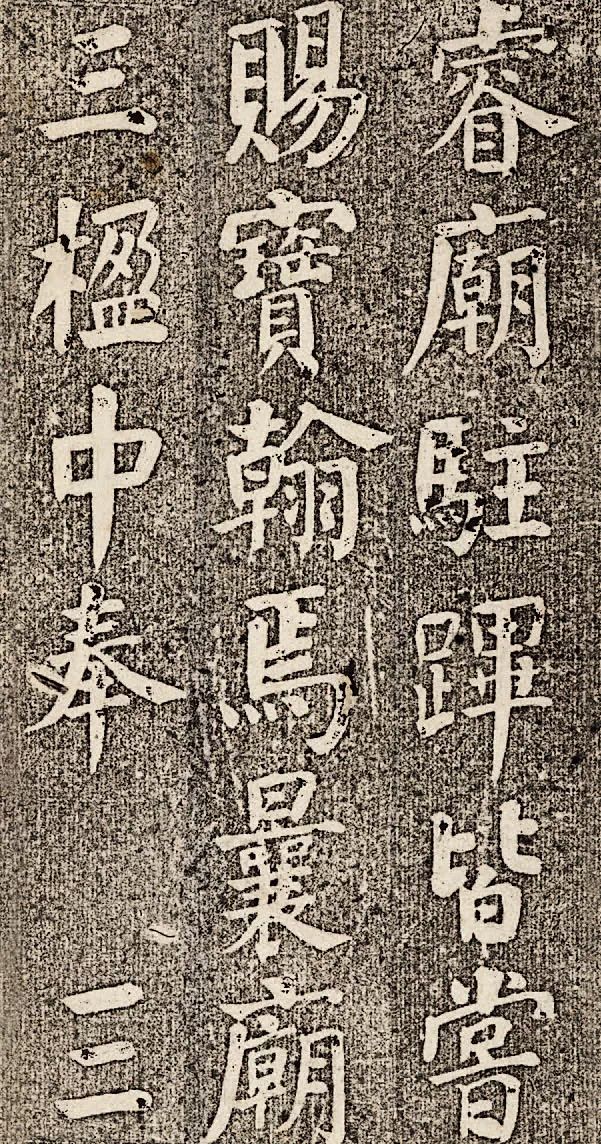 睿廟駐蹕皆嘗
賜寶翰焉曩廟
三楹中奉三